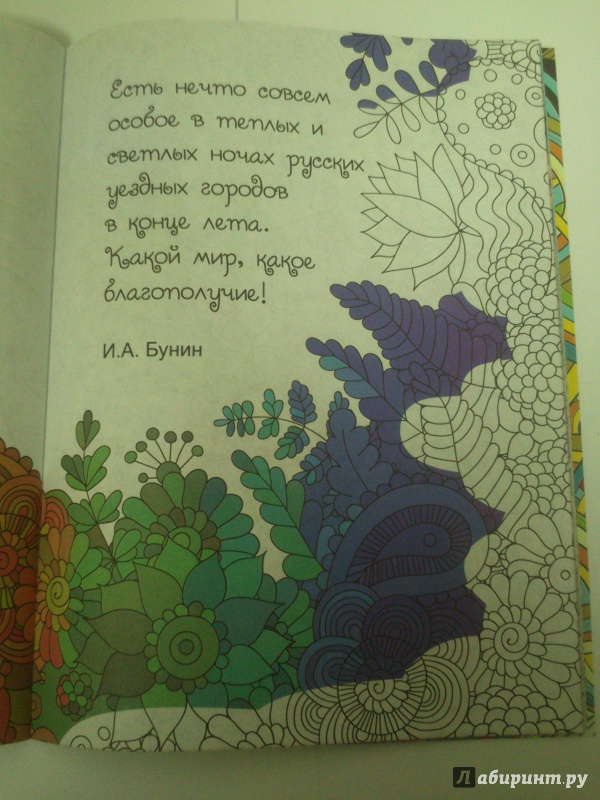 Есть нечто совсем
особое в теплых и
светлых ночах русских
уездных городов
в конце лета.
Какой мир, какое
благополучие!
И.А. Бунин
Лабиринт.ру